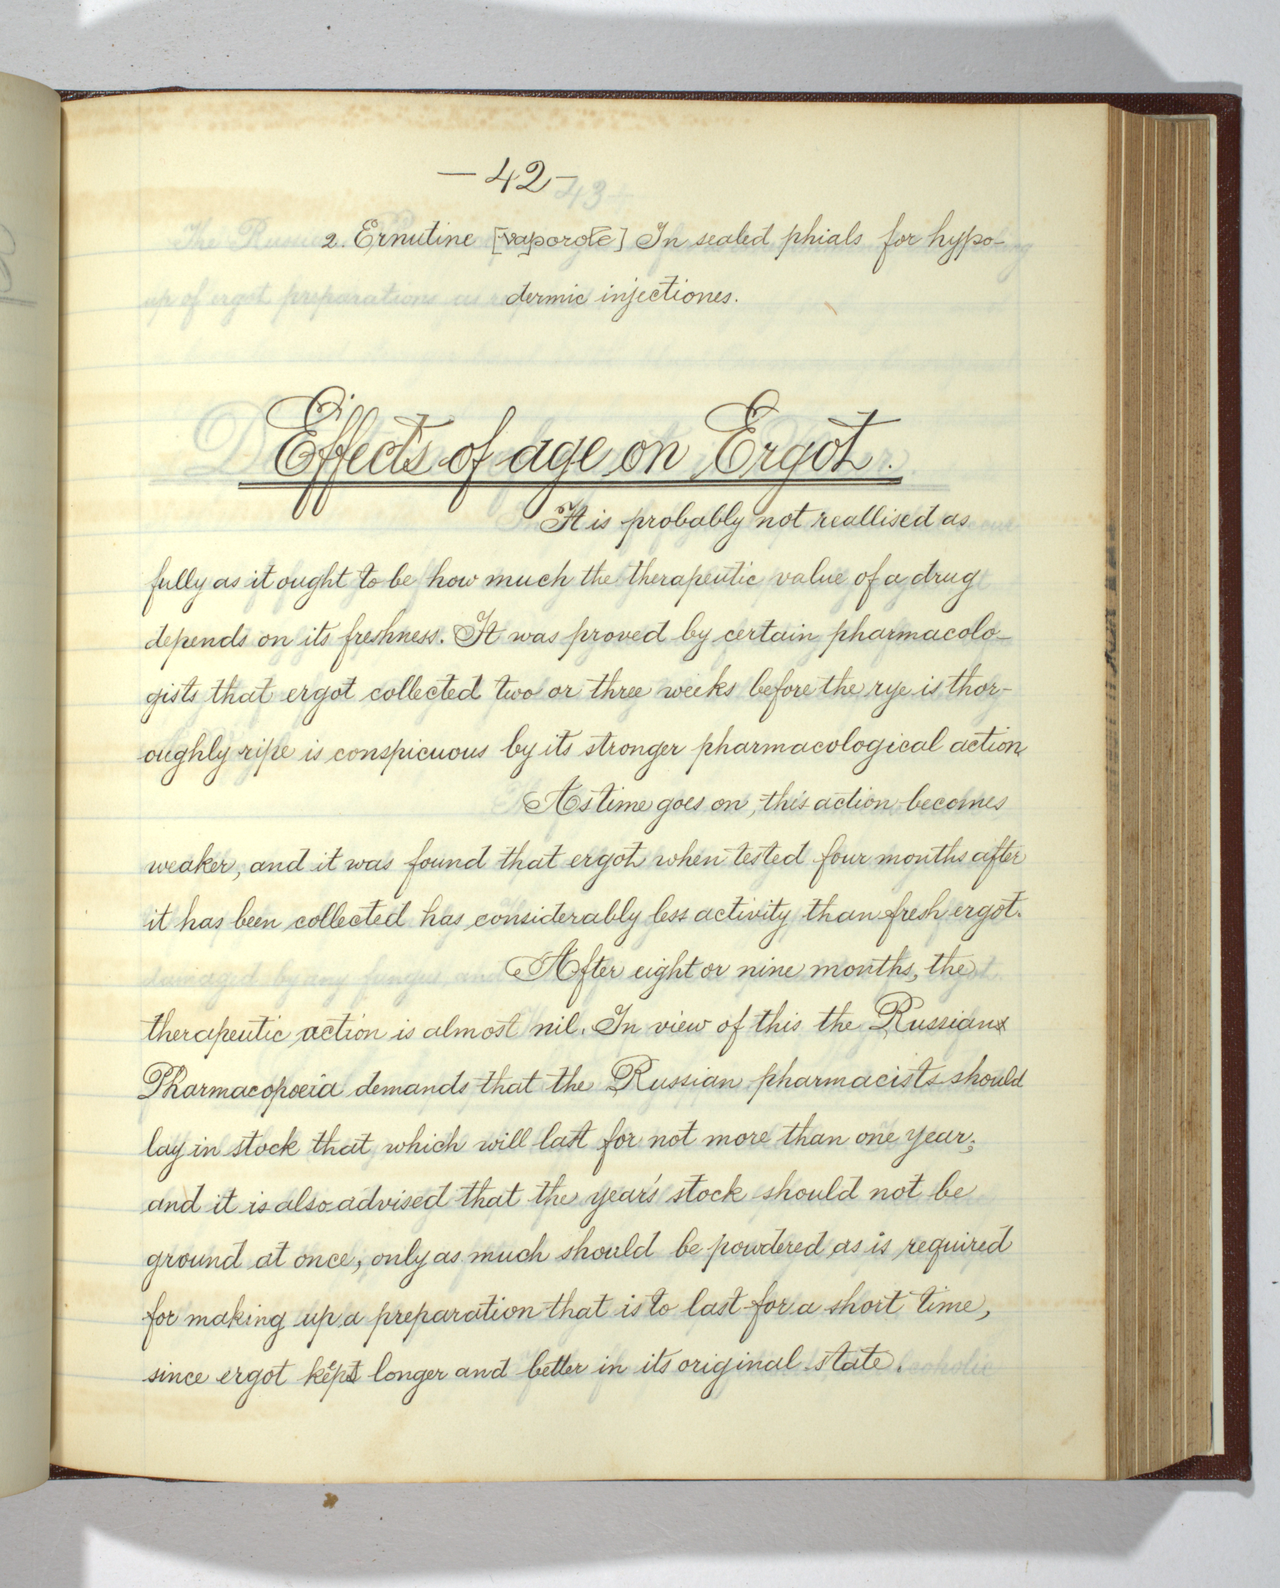 — 42 —
2. Ernutine [vaporole] In sealed phials for hypo-
dermic injectiones.
Effects of age on Ergot.
It is probably not reallised as
fully as it ought to be how much the therapeutic value of a drug
depends on its freshness. It was proved by certain pharmacolo-
gists that ergot collected two or three weeks before the rye is thor-
oughly ripe is conspicuous by its stronger pharmacological action
As time goes on, this action becomes
weaker, and it was found that ergot when tested four months after
it has been collected has considerably less activity than fresh ergot.
After eight or nine months, the
therapeutic action is almost nil. In view of this the Russian
Pharmacopoeia demands that the Russian pharmacists should
lay in stock that which will last for not more than one year;
and it is also advised that the year's stock should not be
ground at once, only as much should be powdered as is required
for making up a preparation that is to last for a short time,
since ergot longer and better in its original state.